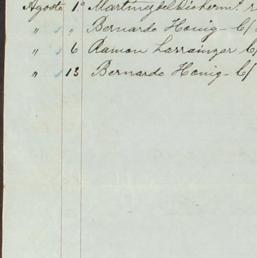 Agosto 1º Martinez
" " " Bernardo Honig - C/
" " 6 Ramon Larrainzar C/
" " 13 Bernardo Honig - C/